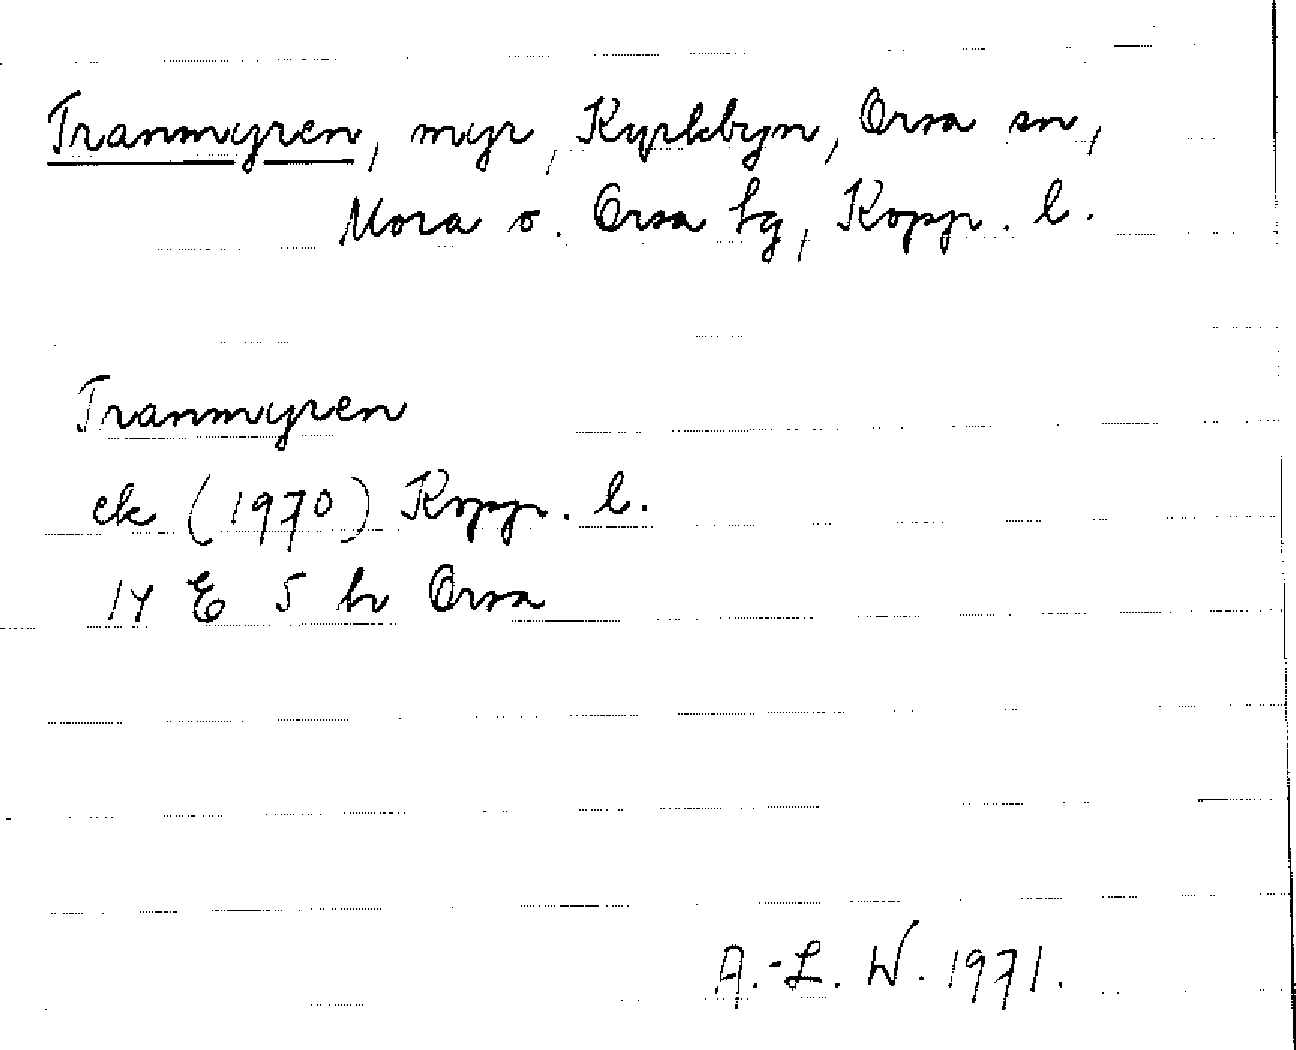 Tranmyren, myr, Kyrkbyn, Orsa sn,
Mora o. Orsa tg, Kopp. l.
Tranmyren
ek (1970) Kopp. l.
14 E 5 h Orsa
A.-L. W. 1971.